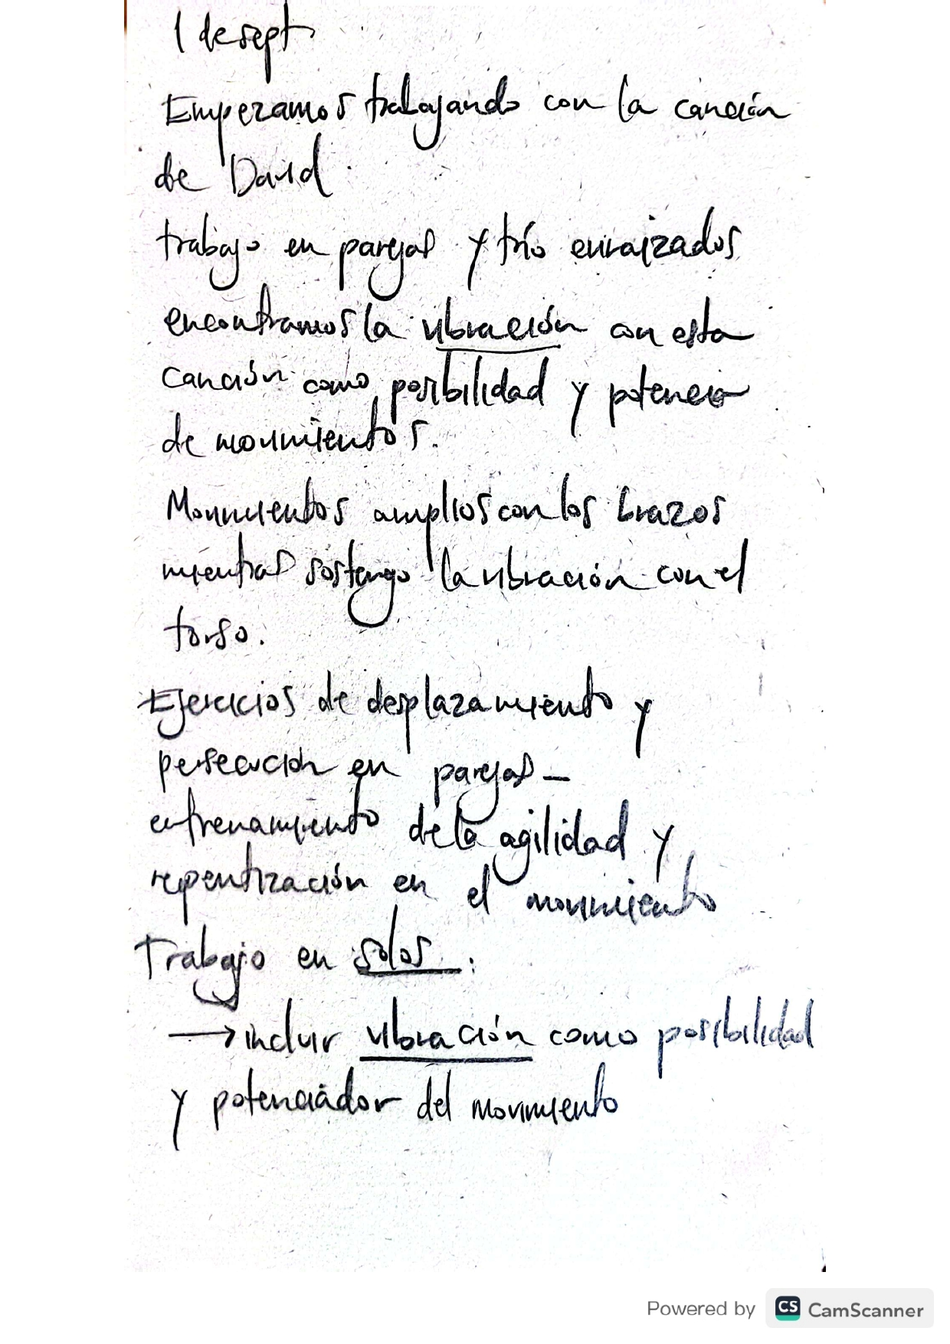 1 de sept
Empezamos trabajando con la canción
de David
trabajo en parejas y trío enraizados
encontramos la vibración con esta
canción como posibilidad y potencia
de movimientos.
Movimientos amplios con los brazos
mientras sostengo la vibración con el
torso.
Ejercicios de desplazamiento y
persecución en parejas —
entrenamiento de la agilidad y
repentización en el movimiento
Trabajo en solos.
→ incluir vibración como posibilidad
y potenciador del movimiento
Powered by CS CamScanner